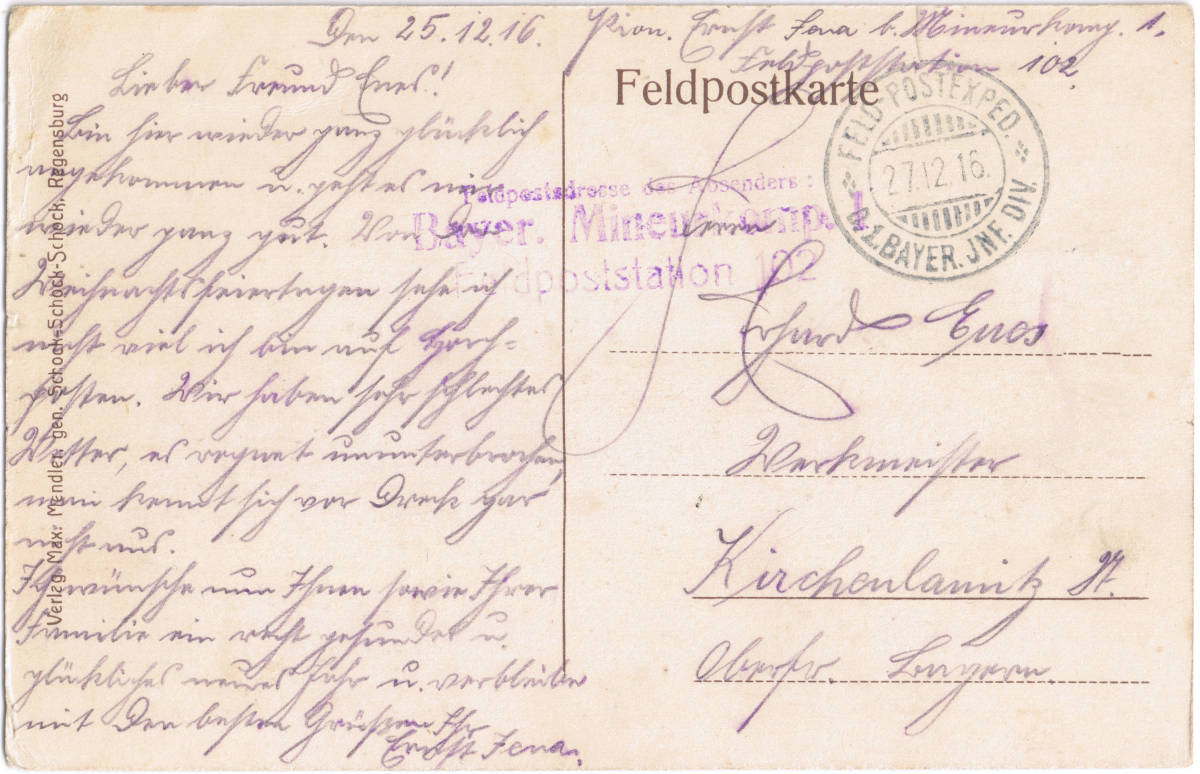 Den 25.12.16.
Lieber Freund Enes!
Bin hier wieder ganz glücklich
angekommen u. geht es mir
wieder ganz gut. Von den
Weihnachtsfeiertagen sehe ich
nicht viel ich bin auf Horch-
posten. Wir haben sehr schlechtes
Wetter, es regnet ununterbrochen,
man kennt sich vor Dreck gar
nicht aus.
Ich wünsche nun Ihnen sowie Ihrer
Familie ein recht gesundes u.
glückliches neues Jahr u. verbleibe
mit den besten Grüßen Ihr
Ernst Jena.
Verlag Max Mendler, gen. Schock-Schock-Schock, Regensburg
Pion. Ernst Jena b. Mineurkomp. 1.
Feldpoststation 102
Feldpostkarte
FELD-POSTEXPED.
27.12.16.
D. 1. BAYER. JNF. DIV.
Feldpostadresse des Absenders:
Bayer. Mineurkomp. 1
Feldpoststation 102
Herrn
Erhard Enes
Werkmeister
Kirchenlamitz St.
Oberfr. Bayern.